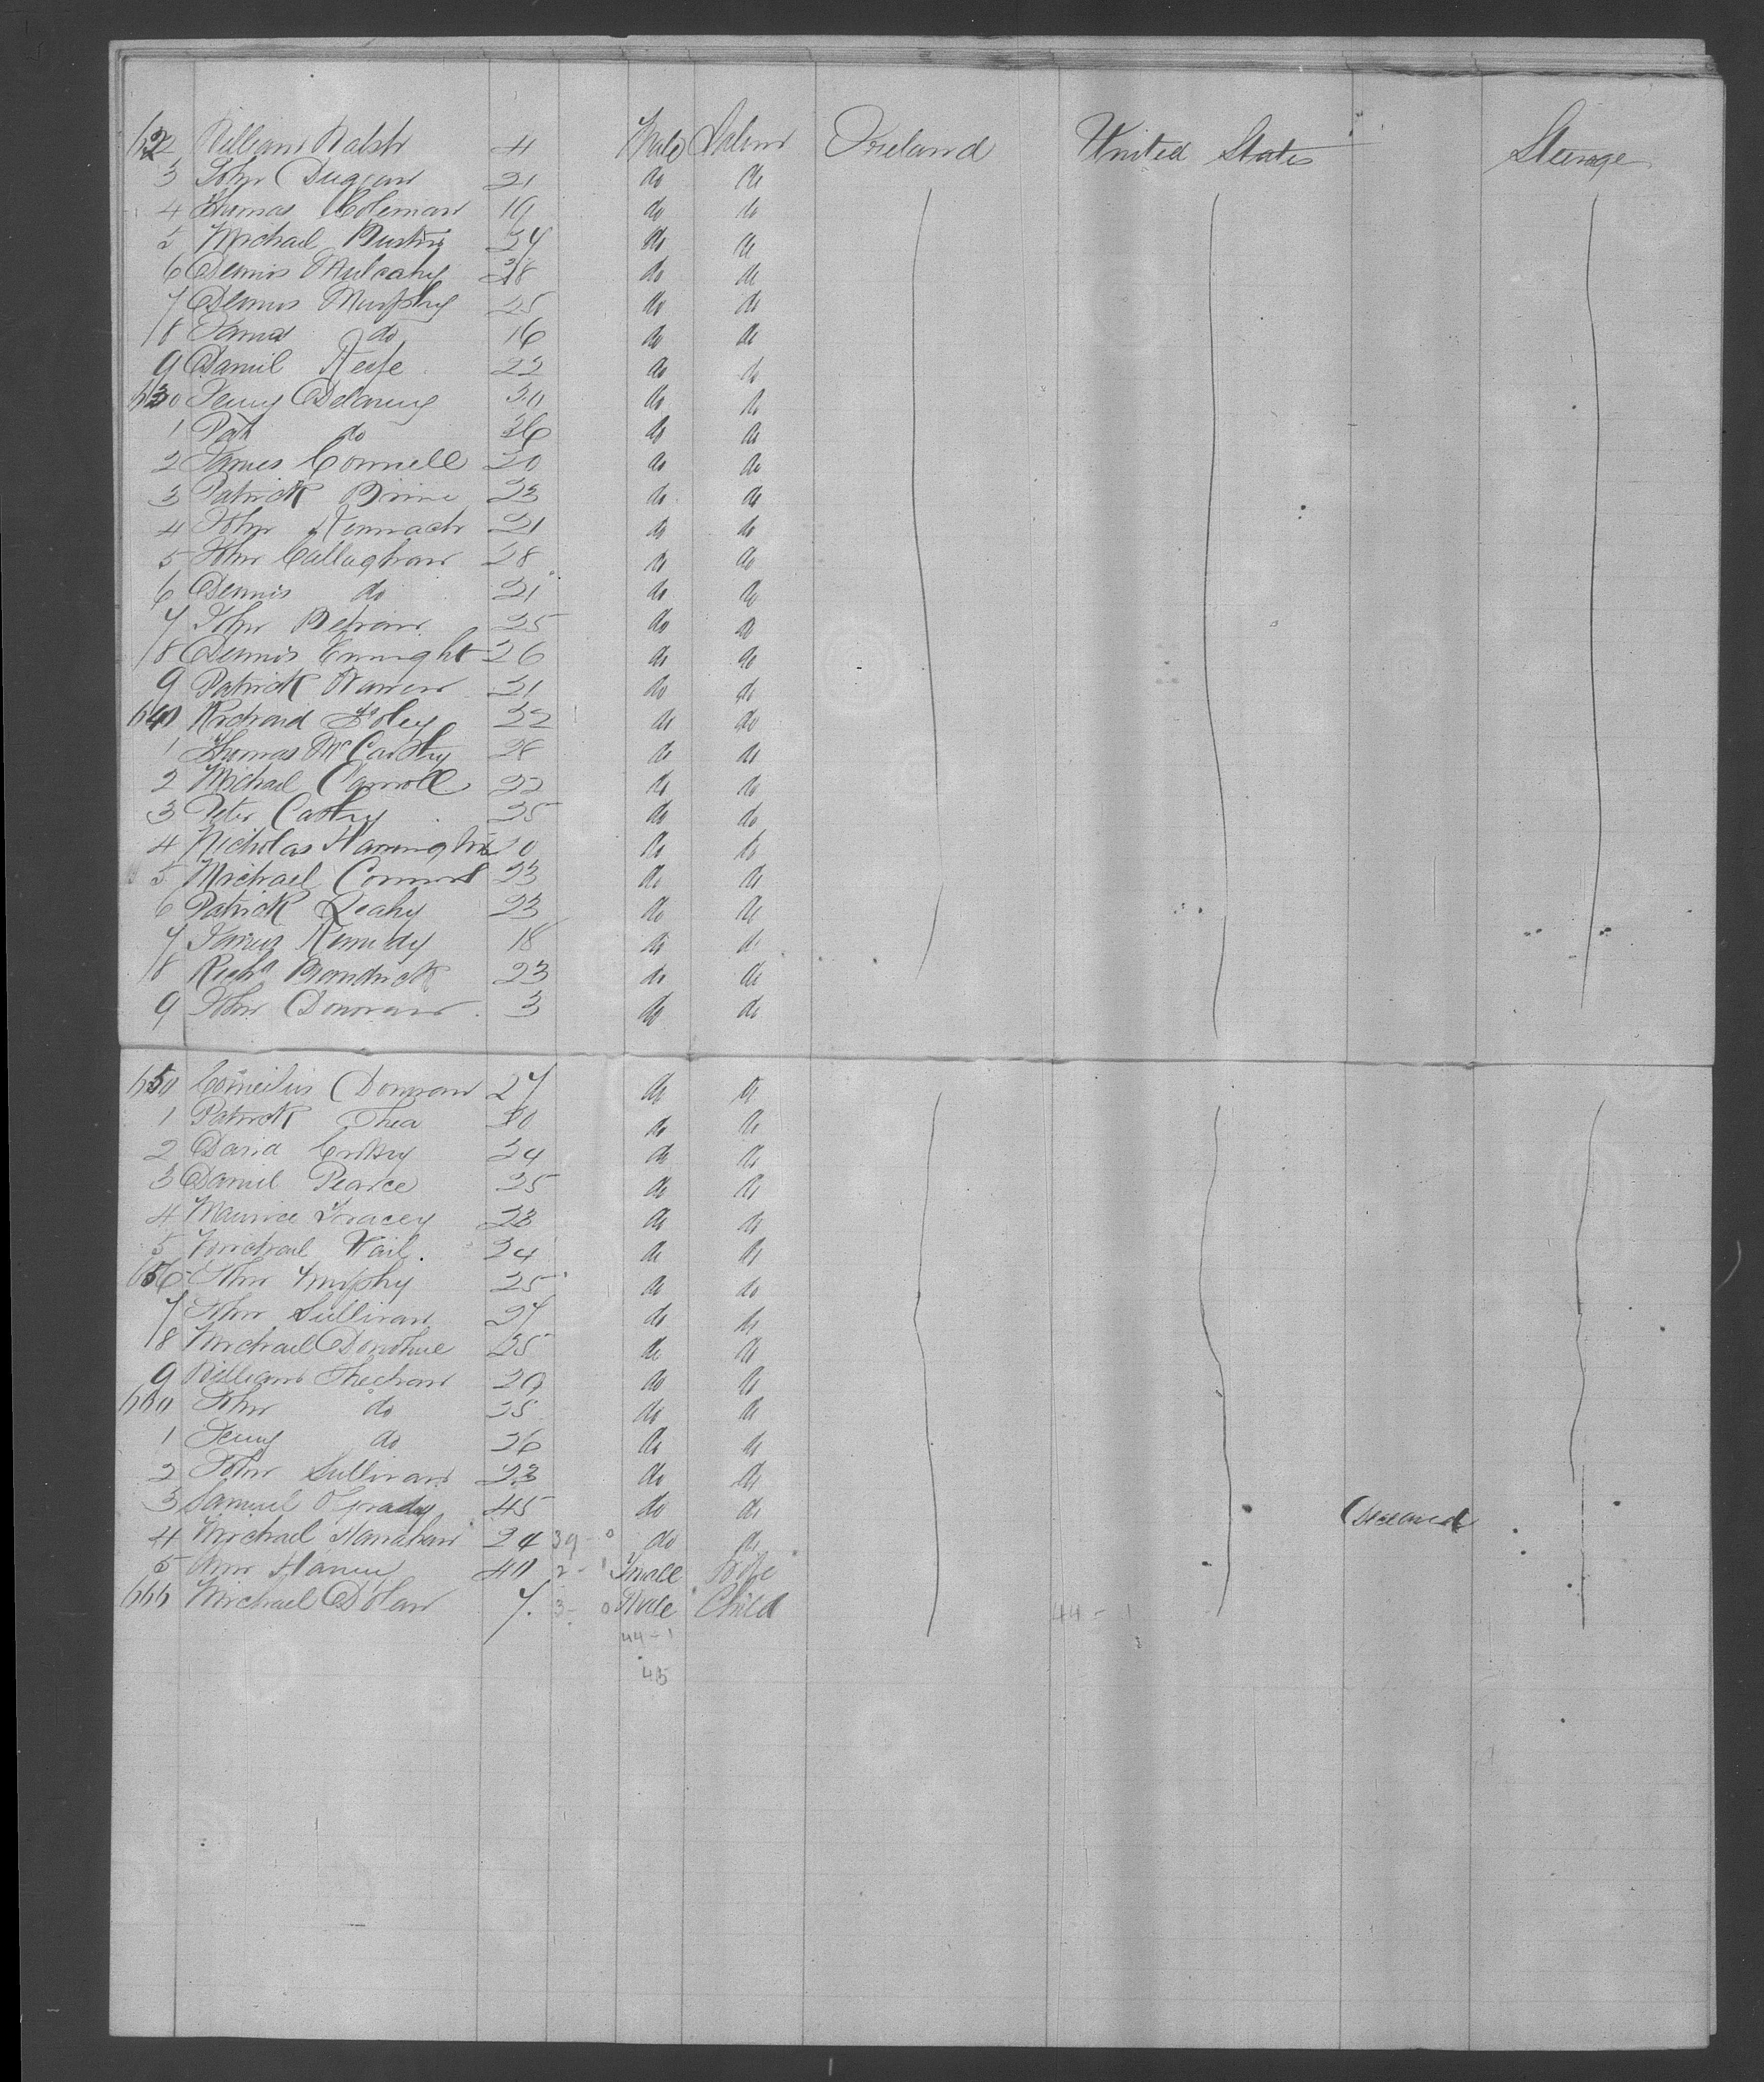 622 William Walsh 41 Male Labour Ireland United States Steerage
3 John Duggan 21 do do
4 Thomas Coleman 19 do do
5 Michael 24 do do
6 Dennis Mulcahy 28 do do
7 Dennis Murphy 25 do do
8 James do 16 do do
9 Daniel Keefe 22 do do
630 Jerry Delaney 30 do do
1 Pat do 26 do do
2 James Connell 20 do do
3 Patrick 23 do do
4 John 21 do do
5 John Callaghan 28 do do
6 Dennis do 21 do do
7 John 25 do do
8 Dennis Enright 26 do do
9 Patrick Warren 21 do do
640 Richard Foley 32 do do
1 Thomas McCarthy 28 do do
2 Michael Carroll 22 do do
3 Peter Cathy 25 do do
4 Nicholas Harrington 20 do do
5 Michael Connors 23 do do
6 Patrick Leahy 23 do do
7 James Kennedy 18 do do
8 Richd 23 do do
9 John Donovan 3 do do
650 Cornelius Donovan 27 do do
1 Patrick Shea do do
2 David 24 do do
3 Daniel Pearce 25 do do
4 Maurice Tracey 23 do do
5 Michael 24 do do
656 John Murphy 25 do do
7 John Sullivan 27 do do
8 Michael Donohue 25 do do
9 William Sheehan 29 do do
660 John do 25 do do
1 Jerry do 26 do do
2 John Sullivan 23 do do
3 Samuel O'Grady 45 do do Deceased
4 Michael Hanrahan 24 39-0 do do
5 Ann 40 2-1 Female Wife
666 Michael Dolan 7. 3-0 Male Child 44-1
44-1
45